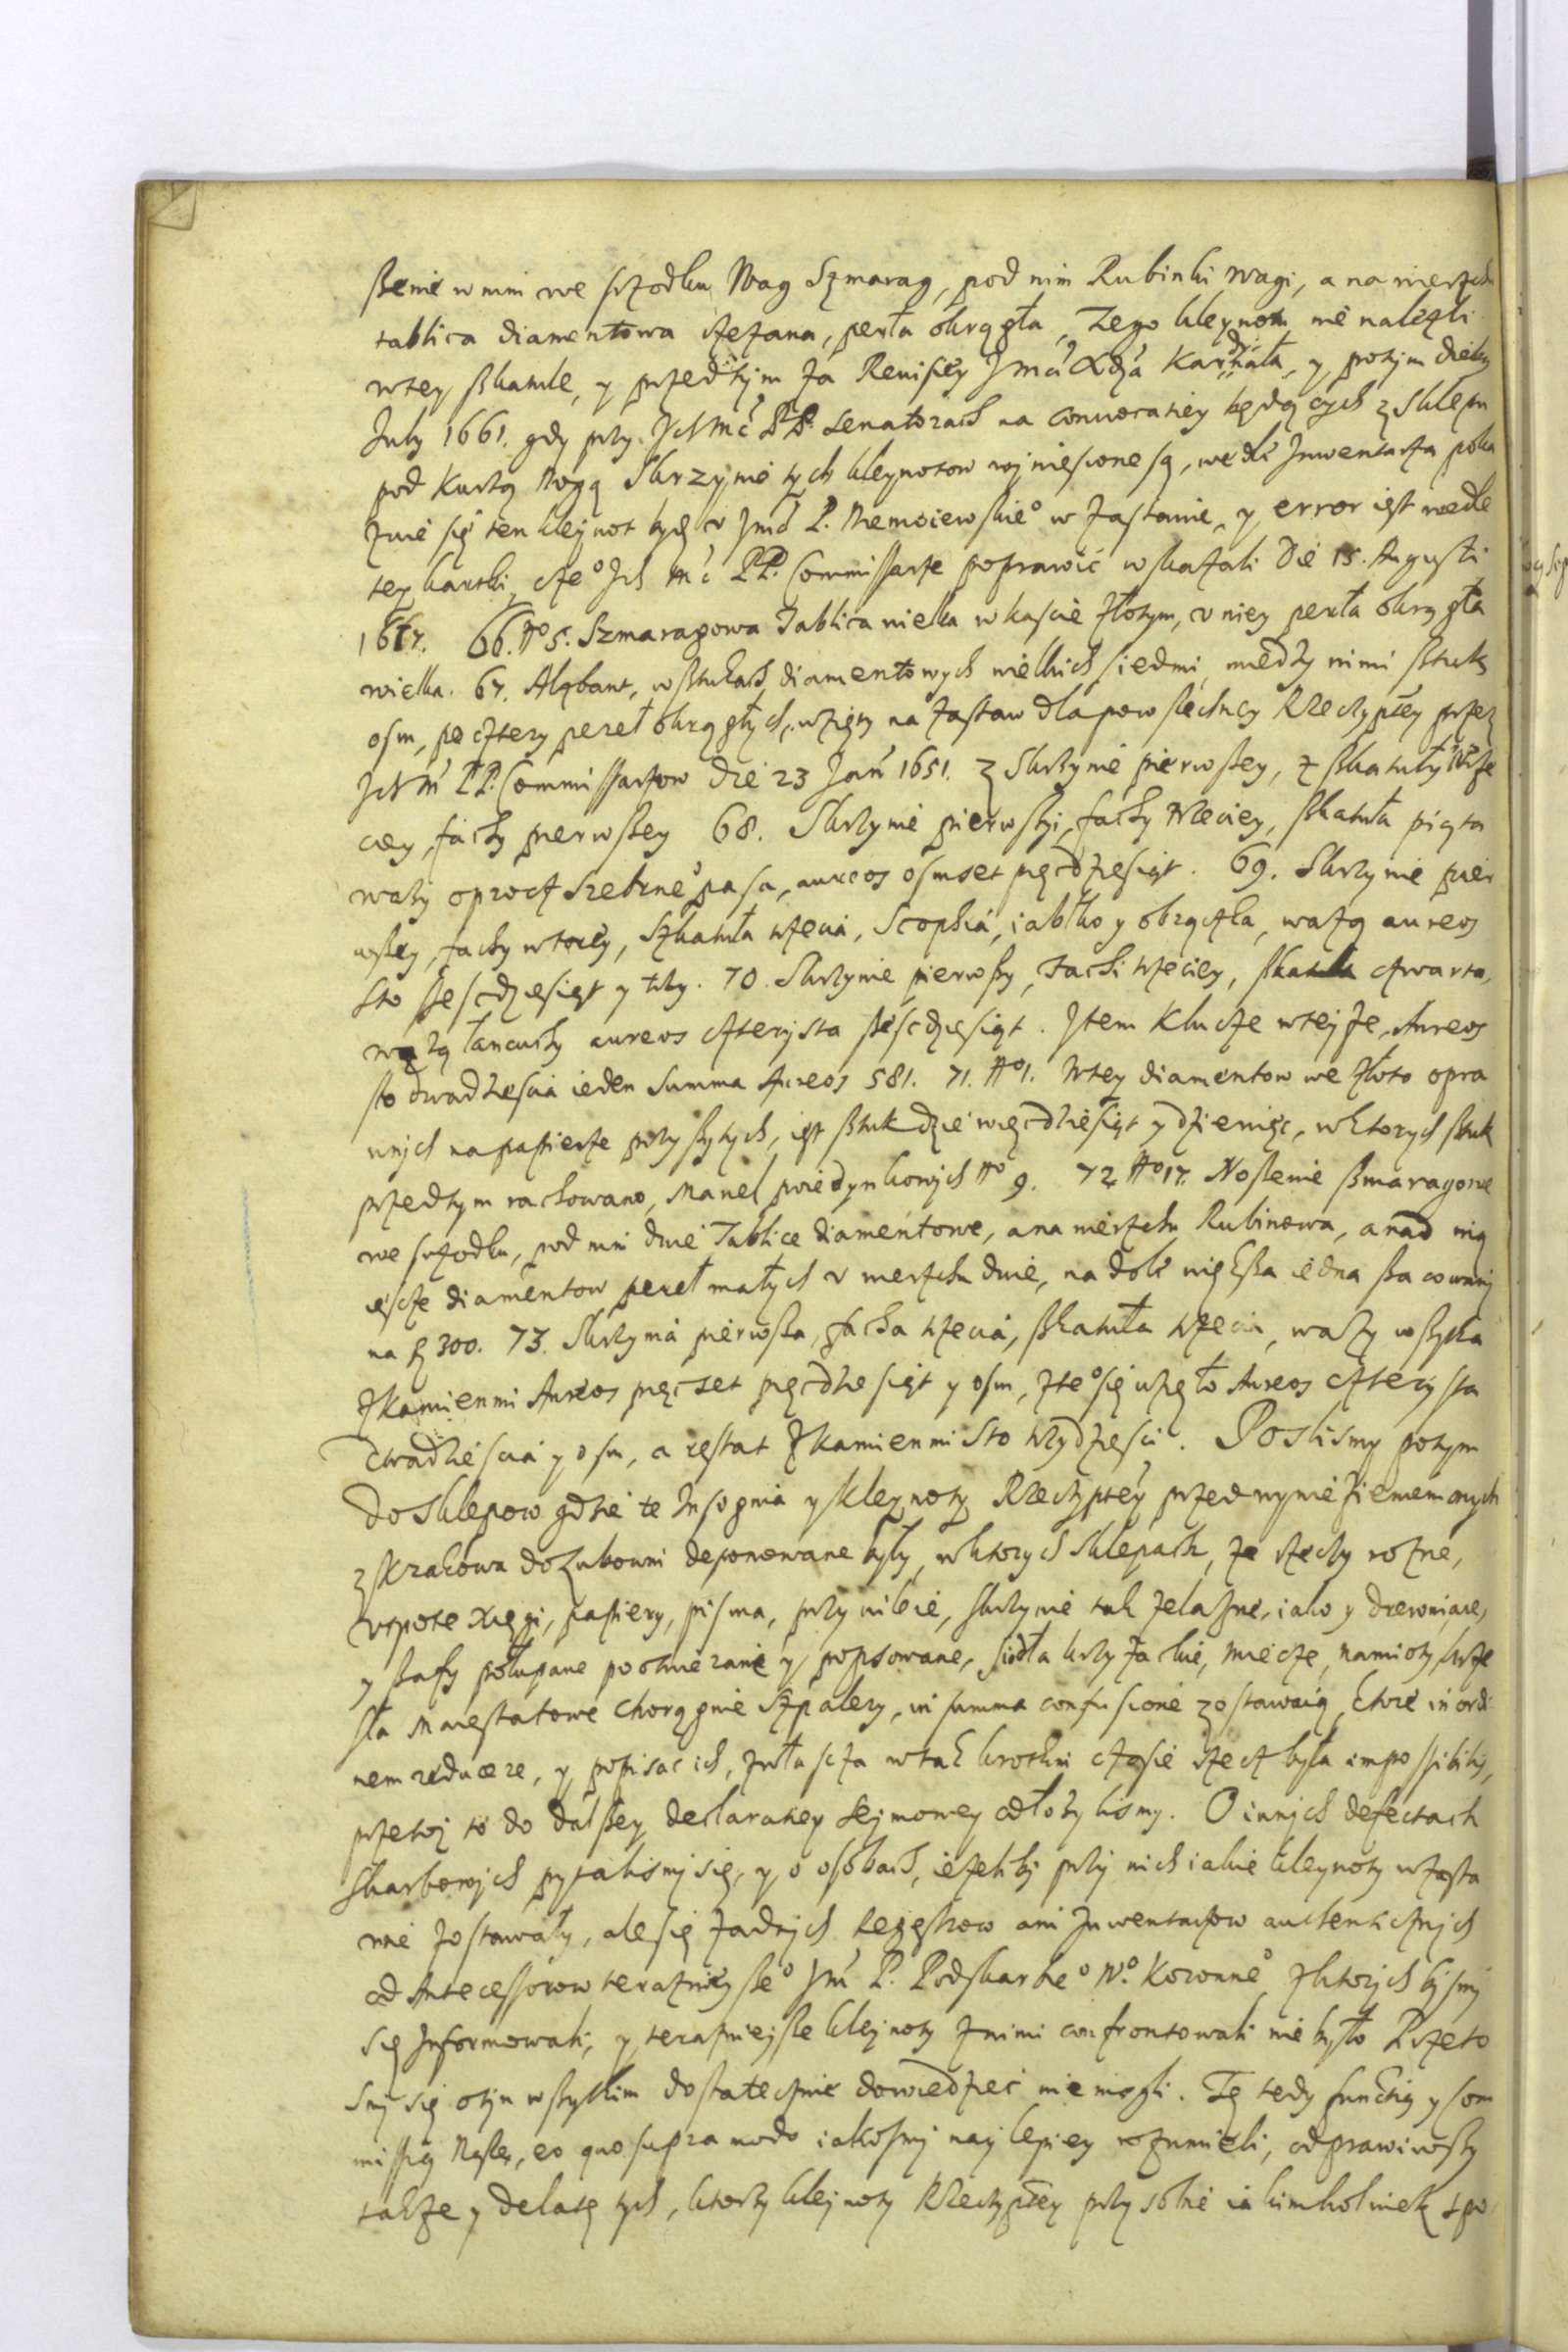 ßenie w nim we srzodku Nag Szmarag, pod nim Rubinki Nagi, a na wierzchu
tablica diamentowa rzezana, perła okrągła, Tego kleynotu nie nalezli
wtey szkatule, y przedtym za Reuisiey Jmci Xdza Kardinała, y potym die
July 1661. gdy przy Ich Mć PP. senatorach na conuocatiey będących z Sklepu
pod Kurzą Nogą Skrzynie tych kleynotow wyniesione są, wedle Inwentarza poka
zuie się ten kleynot byc v Jmć P. Niemoiewskie° w zastawie, y error iest wedle
tey kartki, cze° Ich Mć PP. Commissarze poprawić wskazali Die 15. Augusti
1667. 66. N° 5. Szmaragowa Tablica wielka w kascie złotym, v niey perła okrągła
wielka. 67. Alzbant, w sztukach diamentowych wielkich siedmi, między nimi sztuk
osm, po cztery pereł okrągłych, wzięty na zastaw dla powszechney Rzeczyptey przez
Ich M PP. Commissarzow die 23 Jan 1651. z Skrzynie pierwszey, z szkatuły trze
ciey, fachy pierwszey 68. Skrzynie pierwszy, fachy trzeciey, szkatuła piąta
wazy oprocz srebrne° pasa, aureos osmset pięcdziesiąt. 69. Skrzynie pier
wszey, fachy wtorey, Szkatuła trzecia, Scoptria, iabłko y obrączka, wazą aureos
sto szescdziesiąt y trzy. 70. Skrzynie pierwszy, fachi trzeciey, szkatuła czwarta,
wazą łancuchy aureos czterysta szescdziesiąt. Item Klucze wteyze, Aureos
sto dwadziescia ieden Summa Aureos 581. 71. N° 1. Wtey diamentow we złoto opra
wnych na papierze przyszytych, iest sztuk dziewięcdziesiąt y dziewięc, w ktorych sztuk
przedtym rachowano, Manel poiedynkowych N° 9. 72. N° 17. Noszenie szmaragowe
we srzodku, pod nim dwie Tablice diamentowe, a na wierzchu Rubinowa, a nad nią
ieszcze diamentow, pereł małych v wierzchu dwie, na dole większa iedna szacowany
na f 300. 73. Skrzynia pierwsza, facha trzecia, szkatuła trzecia, wazy wszytka
z kamienmi Aureos pięcset pięcdziesiąt y osm, z te° się wzięło Aureos czterysta
dwadziescia y osm, a restat z kamienmi Sto trzydziesci. Poslismy potym
do sklepow gdzie te Insignia y kleynoty Rzeczyptey przed wymie zienionych
z Krakowa do Lubowni deponowane były, w ktorych Sklepach, ze rzeczy rozne,
vtpote xięgi, papiery, pisma, przywileie, skrzynie tak zelazne, iako y drewniane,
y szafy połupane pootwierane y popsowane, siodła krzyzackie, miecze, namioty, krze
sła Maiestatowe chorągwie szpalery, in summa confusione zostawaią, ktore in ordi
nem reducere, y popisac ich, zwłascza w tak krotkim czasie rzecz była impossibilis,
przetoz to do dalszey declaratiey seymowey odłozylismy. O innych defectach
skarbowych pytalismy się, y o osobach, iezeliby przy nich iakie kleynoty w zasta
wie zostawały, ale się zadnych Regestrow ani Inwentarzow autentycznych
od Antecessorow terazniejsze° Jm P. Podskarbie° W° Koronne°, z ktorych bysmy
się Informowali, y teraznieysze kleynoty z nimi confrontowali nie było Przeto
smy się o tym wszytkim dostatecznie dowiedziec nie mogli. Tę tedy functią y Com
missią Naszę, eo quo supra modo iakosmy naylepiey rozumieli, odprawiwszy
takze y delatę tych, ktorzy kleynoty Rzeczyptey przy sobie iakimkolwiek spo